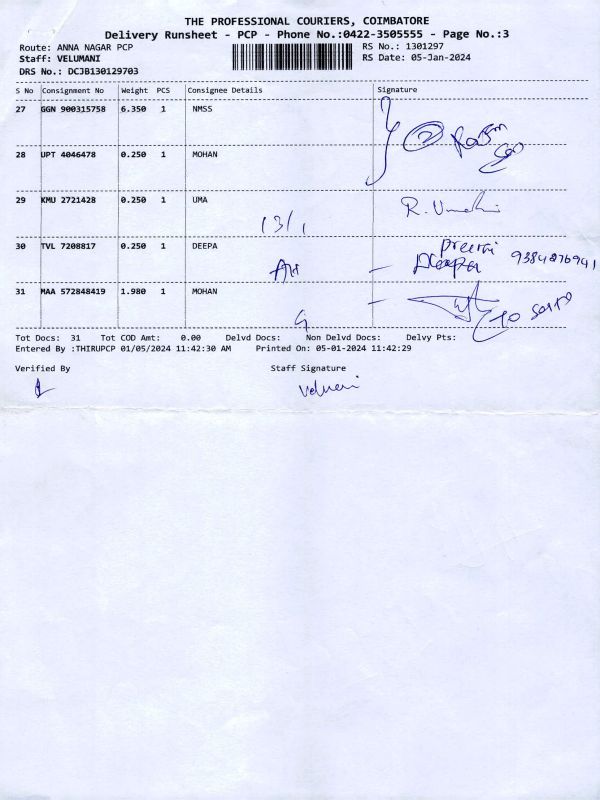 THE PROFESSIONAL COURIERS, COIMBATORE
Delivery Runsheet - PCP - Phone No.:0422-3505555 - Page No.:3
Route: ANNA NAGAR PCP RS No.: 1301297
Staff: VELUMANI RS Date: 05-Jan-2024
DRS No.: DCJB130129703
S No Consignment No Weight PCS Consignee Details Signature
27 GGN 900315758 6.350 1 NMSS
28 UPT 4046478 0.250 1 MOHAN
29 KMU 2721428 0.250 1 UMA
13/1
30 TVL 7208817 0.250 1 DEEPA
Deepa 9384876941
31 MAA 572848419 1.980 1 MOHAN
Tot Docs: 31 Tot COD Amt: 0.00 Delvd Docs: Non Delvd Docs: Delvy Pts:
Entered By :THIRUPCP 01/05/2024 11:42:30 AM Printed On: 05-01-2024 11:42:29
Verified By Staff Signature